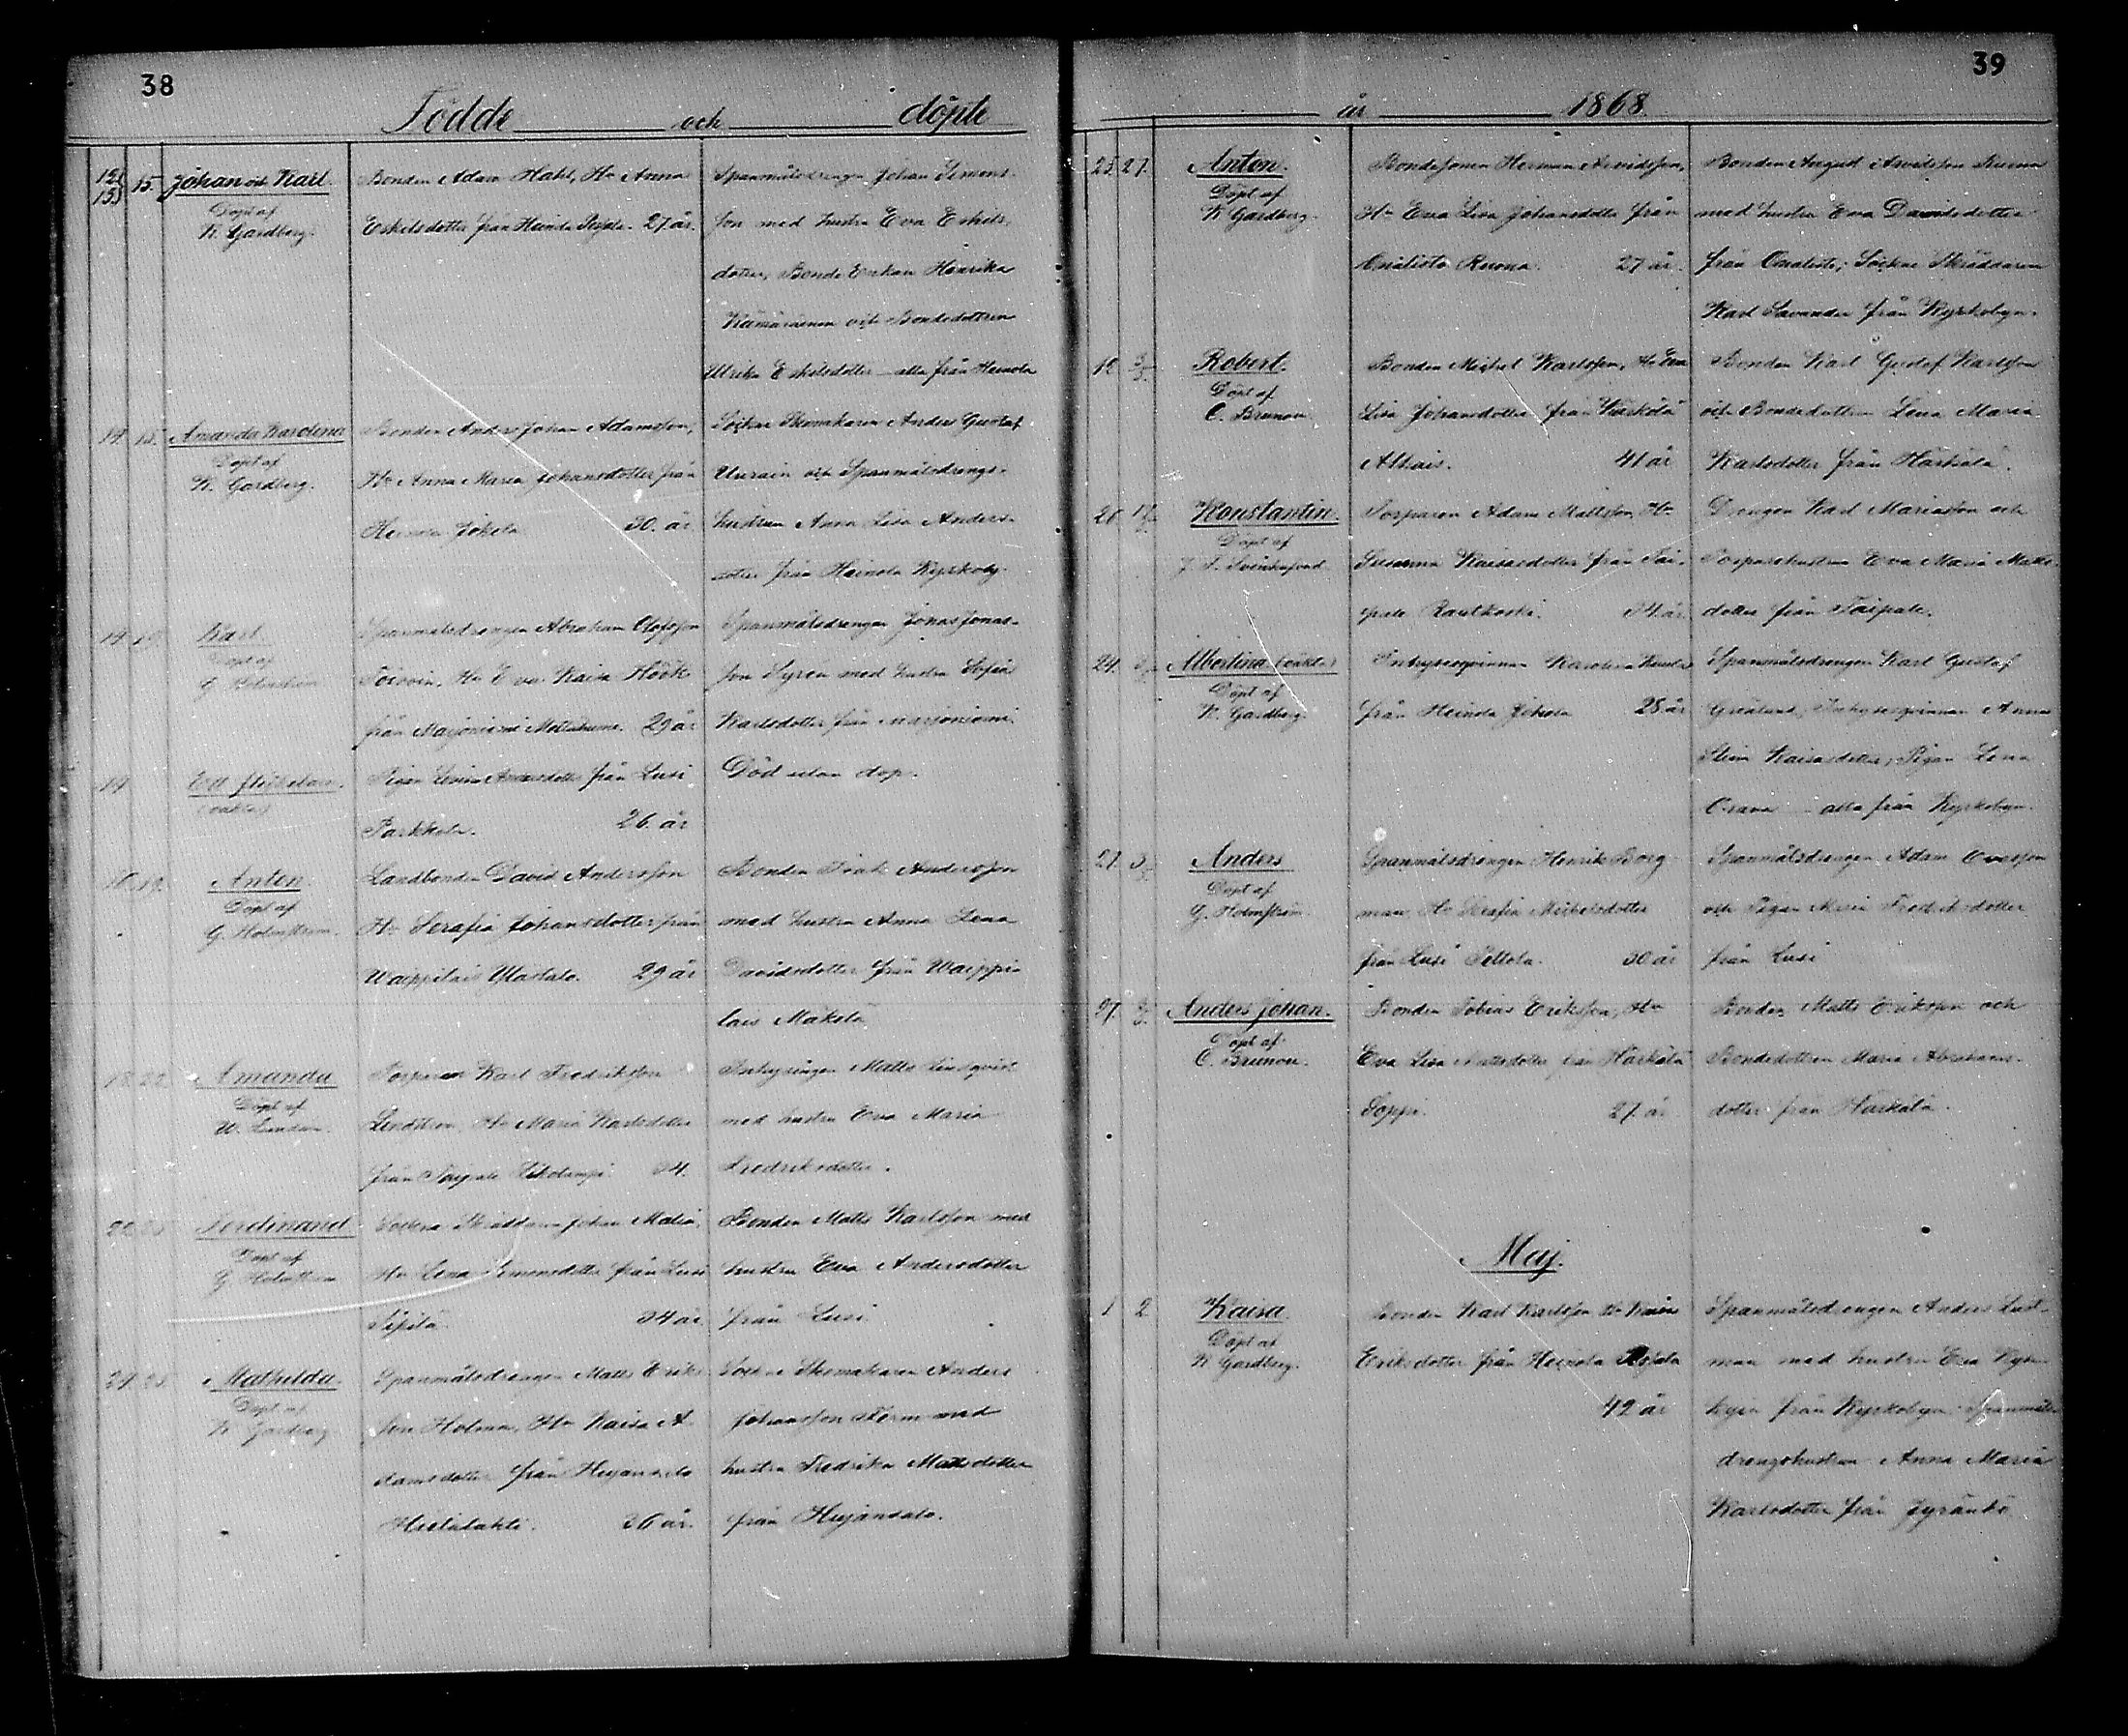 38
Födde och döpte
12/13 15. Johan och Karl.
Döpt af
K. Gardberg.
Bonden Adam Hahl, Hu Anna
Eskilsdotter från Heinola 27 år.
Spanmålsdrengen Johan Simons-
son med hustru Eva Eskils-
dotter, Bonde Enkan Henrika
Kämäräinen och Bondedottren
Ulrika Eskilsdotter alla från Heinola
14. 15. Amanda Karolina
Döpt af
K. Gardberg.
Bonden Anders Johan Adamsson,
Hu Anna Maria Johansdotter från
Heinola Jokela 30. år
Sockne Skomakaren Anders Gustaf
och Spanmålsdrengs-
hustrun Anna Lisa Anders-
dotter från Heinola Kyrkoby.
14. 19. Karl
Döpt af
G. Holmström
Spanmålsdrengen Abraham Olofsson
Toivoin, Hu Eva Kaisa Höök
från Marjoniemi 29 år
Spanmålsdrengen Jonas Jonas-
son Syrén med hustru Sofia
Karlsdotter från Marjoniemi.
14 Ett flickebarn.
(oäkta)
Pigan från Lusi
26. år
Död utan dop.
16. 19. Anton.
Döpt af
G. Holmström.
Landbonden David Andersson
Hu Serafia Johansdotter från
Waippilais Ylästalo. 29 år
Bonden Isak Andersson
med hustru Anna Lena
Davidsdotter från Waippi-
lais Mäkelä
18. 22. Amanda
Döpt af
W.
Torparen Karl Fredriksson
Lindström, Hu Maria Karlsdotter
från Taipale 34.
Inhysingen Matts Lindqvist
med hustru Eva Maria
Fredriksdotter.
22. 25 Ferdinand
Döpt af
G. Holmström
Sockne Skräddaren Johan
Hu Lena Simonsdotter från Lusi
34 år
Bonden Matts Karlsson med
hustru Eva Andersdotter
från Lusi.
24. 25. Mathilda.
Döpt af
K. Gardberg
Spanmålsdrengen Matts Eriks-
son Holman, Hu Kaisa A-
damsdotter från Heijansalo
Hietalahti. 26 år.
Sockne Skomakaren Anders
Johansson Form med
hustru Fredrika Mattsdotter
från Heijansalo.
39
år 1868.
25. 27. Anton.
Döpt af
K. Gardberg.
Bondesonen Herman Arvidsson,
Hu Eva Lisa Johansdotter från
Onalisto Ruona. 27 år.
Bonden August Arvidsson Ruona
med hustru Eva Davidsdotter
från Onalisto; Sockne Skräddaren
Karl Savander från Kyrkobyn.
12 3/5. Robert.
Döpt af
C. Brunou
Bonden Michel Karlsson, Hu Eva
Lisa Johansdotter från Härkälä
41 år
Bonden Karl Gustaf Karlsson
och Bondedottren Lena Maria
Karlsdotter från Härkälä.
26 Konstantin.
Döpt af
Torparen Adam Mattsson, Hu
Susanna Kaisasdotter från Tai-
pale Rautkoski. 34 år.
Drengen Karl Mariasson och
Torparehustrun Eva Maria Matts-
dotter från Taipale.
24. Albertina (oäkta)
Döpt af
K. Gardberg.
Inhysesqvinnan Karolina
från Heinola Jokela 28 år
Spanmålsdrengen Karl Gustaf
Grönlund, Inhysesqvinnan Anna
Stina Kaisasdotter, Pigan Lena
alla från Kyrkobyn.
27. 3/5 Anders
Döpt af
G. Holmström.
Spanmålsdrengen Henrik Borg-
man, Hu Serafia Michelsdotter
från Lusi Peltola. 30 år
Spanmålsdrengen Adam
och Pigan Maria Fredriksdotter
från Lusi
27. Anders Johan.
Döpt af
C. Brunou.
Bonden Tobias Eriksson, Hu
Eva Lisa Mattsdotter från Härkälä
Seppi. 27. år
Bonden Matts Eriksson och
Bondedottren Maria Abrahams-
dotter från Härkälä.
Maj.
1 2 Kaisa.
Döpt af
K. Gardberg.
Bonden Karl Karlsson Hu Kaisa
Eriksdotter från Heinola
42 år
Spanmålsdrengen Anders Lust-
man med hustru Eva
från Kyrkobyn Spanmåls-
drengshustrun Anna Maria
Karlsdotter från Jyränkö